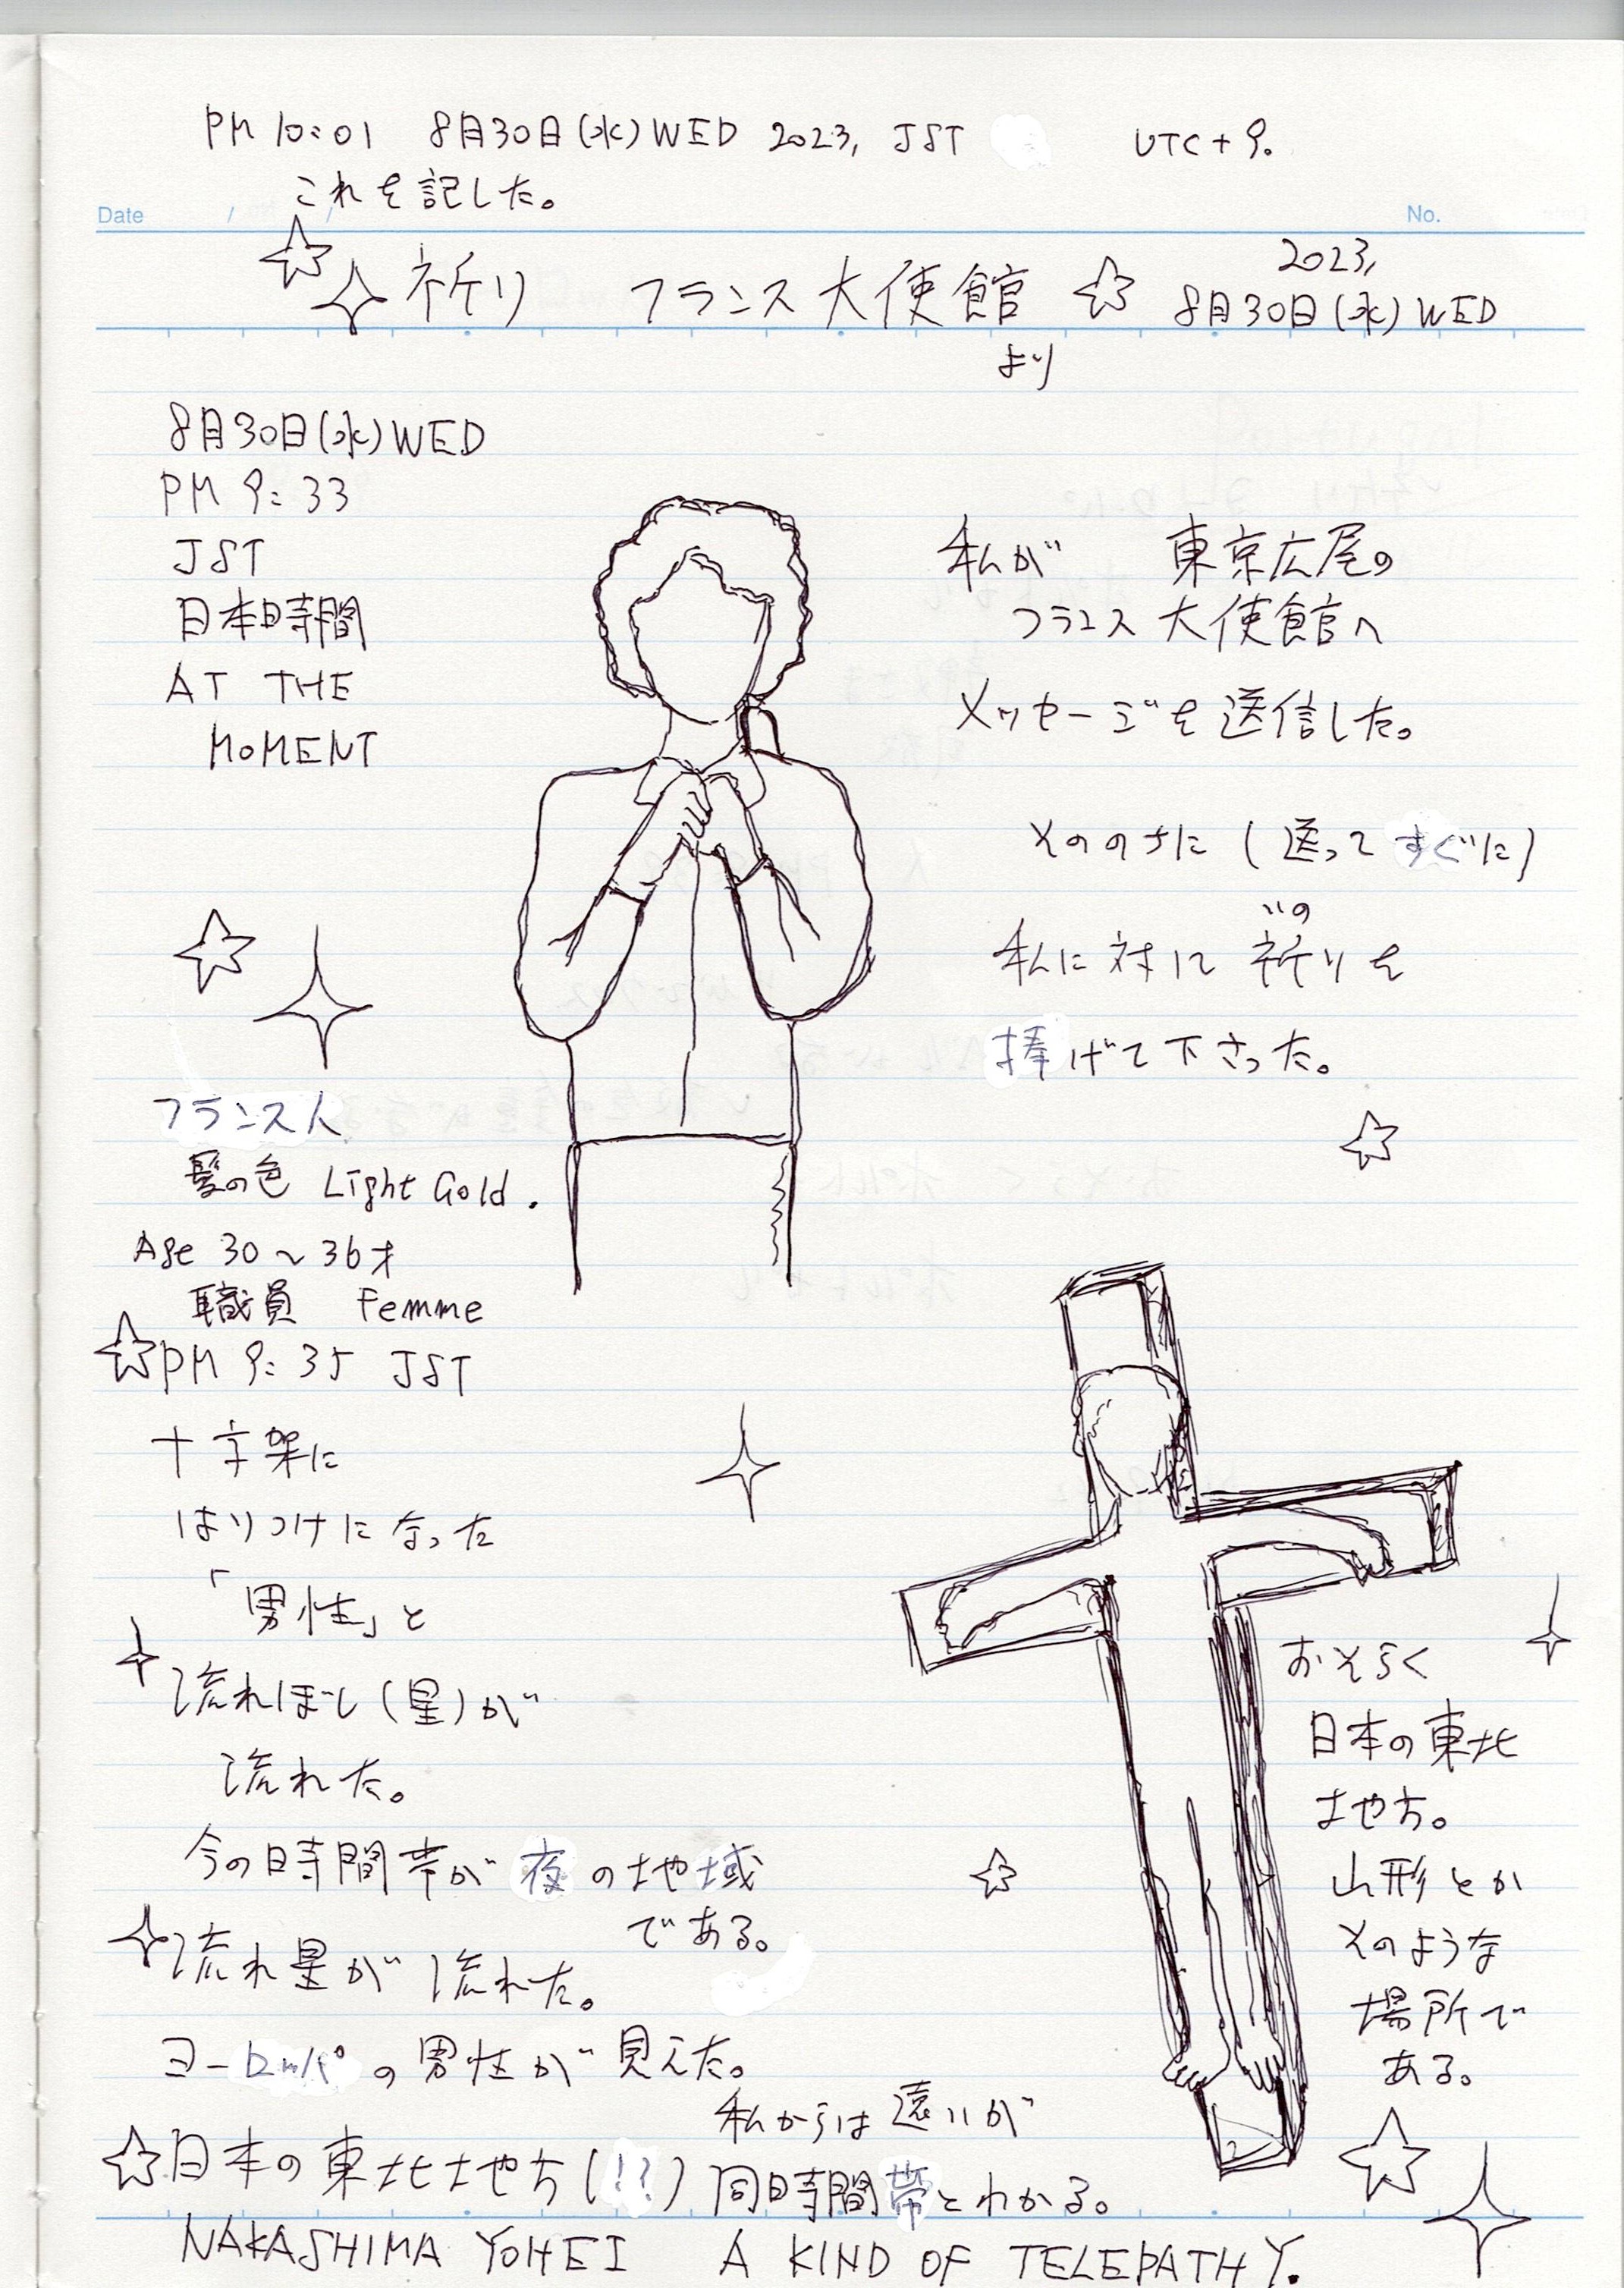 PM 10:01 8月30日(水)WED 2023, JST UTC+9.
これを記した。
Date / / No.
祈り フランス大使館 2023,
8月30日(水)WED
より
8月30日(水)WED
PM 9:33
JST
日本時間
AT THE
MOMENT
私が 東京広尾の
フランス大使館へ
メッセージを送信した。
そののちに(送ってすぐに)
いの
私に対して祈りを
捧げて下さった。
フランス人
髪の色 Light Gold.
Age 30~36才
職員 Femme
PM 9:35 JST
十字架に
はりつけになった
「男性」と
流れぼし(星)が
流れた。
今の時間帯が夜の地域
である。
流れ星が流れた。
ヨーロッパの男性が見えた。
おそらく
日本の東北
地方。
山形とか
そのような
場所で
ある。
私からは遠いが
日本の東北地方(!?) 同時間帯とわかる。
NAKASHIMA YOHEI A KIND OF TELEPATHY.